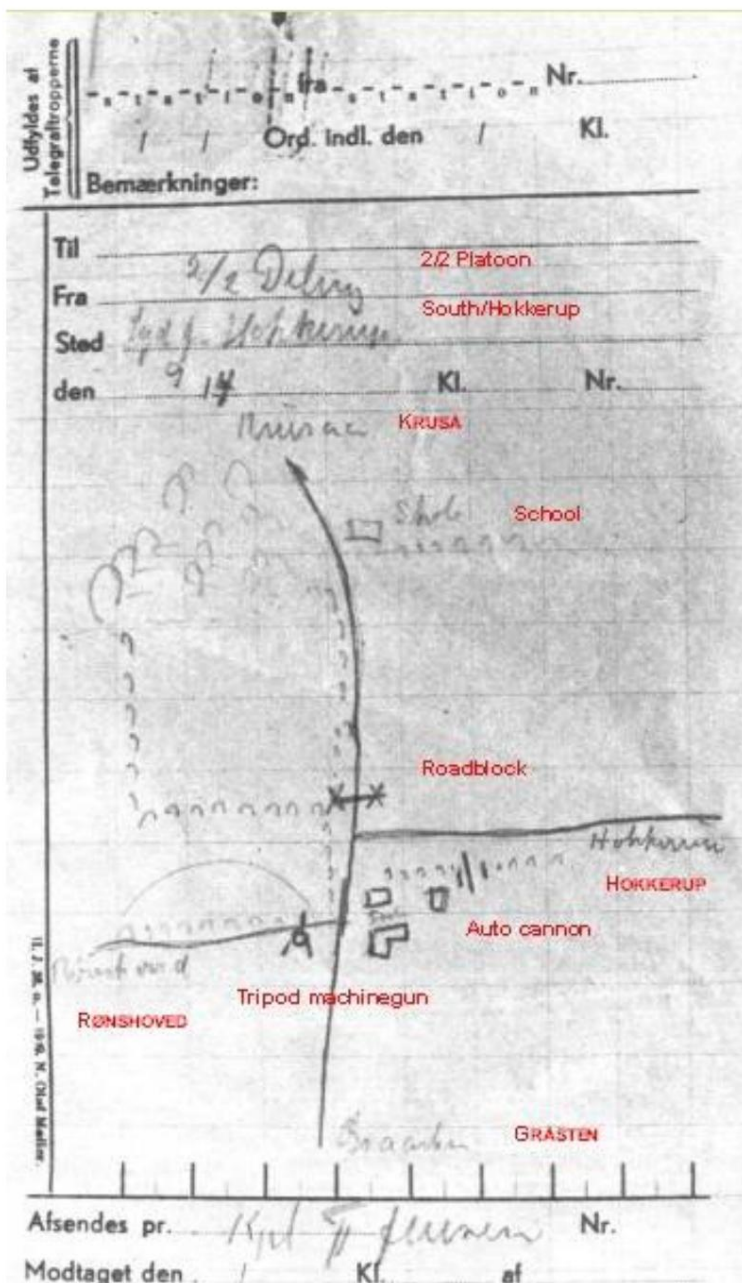 Udfyldes af
Telegraftropperne
station fra station Nr.
/ / Ord. indl. den / Kl.
Bemærkninger:
Til
2/2 Deling 2/2 Platoon
Fra
South/Hokkerup
Sted Syd f. Hokkerup
den 9 / 4 Kl. Nr.
Krusaa KRUSÅ
Skole School
Roadblock
Hokkerup
HOKKERUP
Auto cannon
Rønshoved
Tripod machinegun
RØNSHOVED
Graasten GRÅSTEN
Afsendes pr. Kpl Nr.
Modtaget den / Kl. af